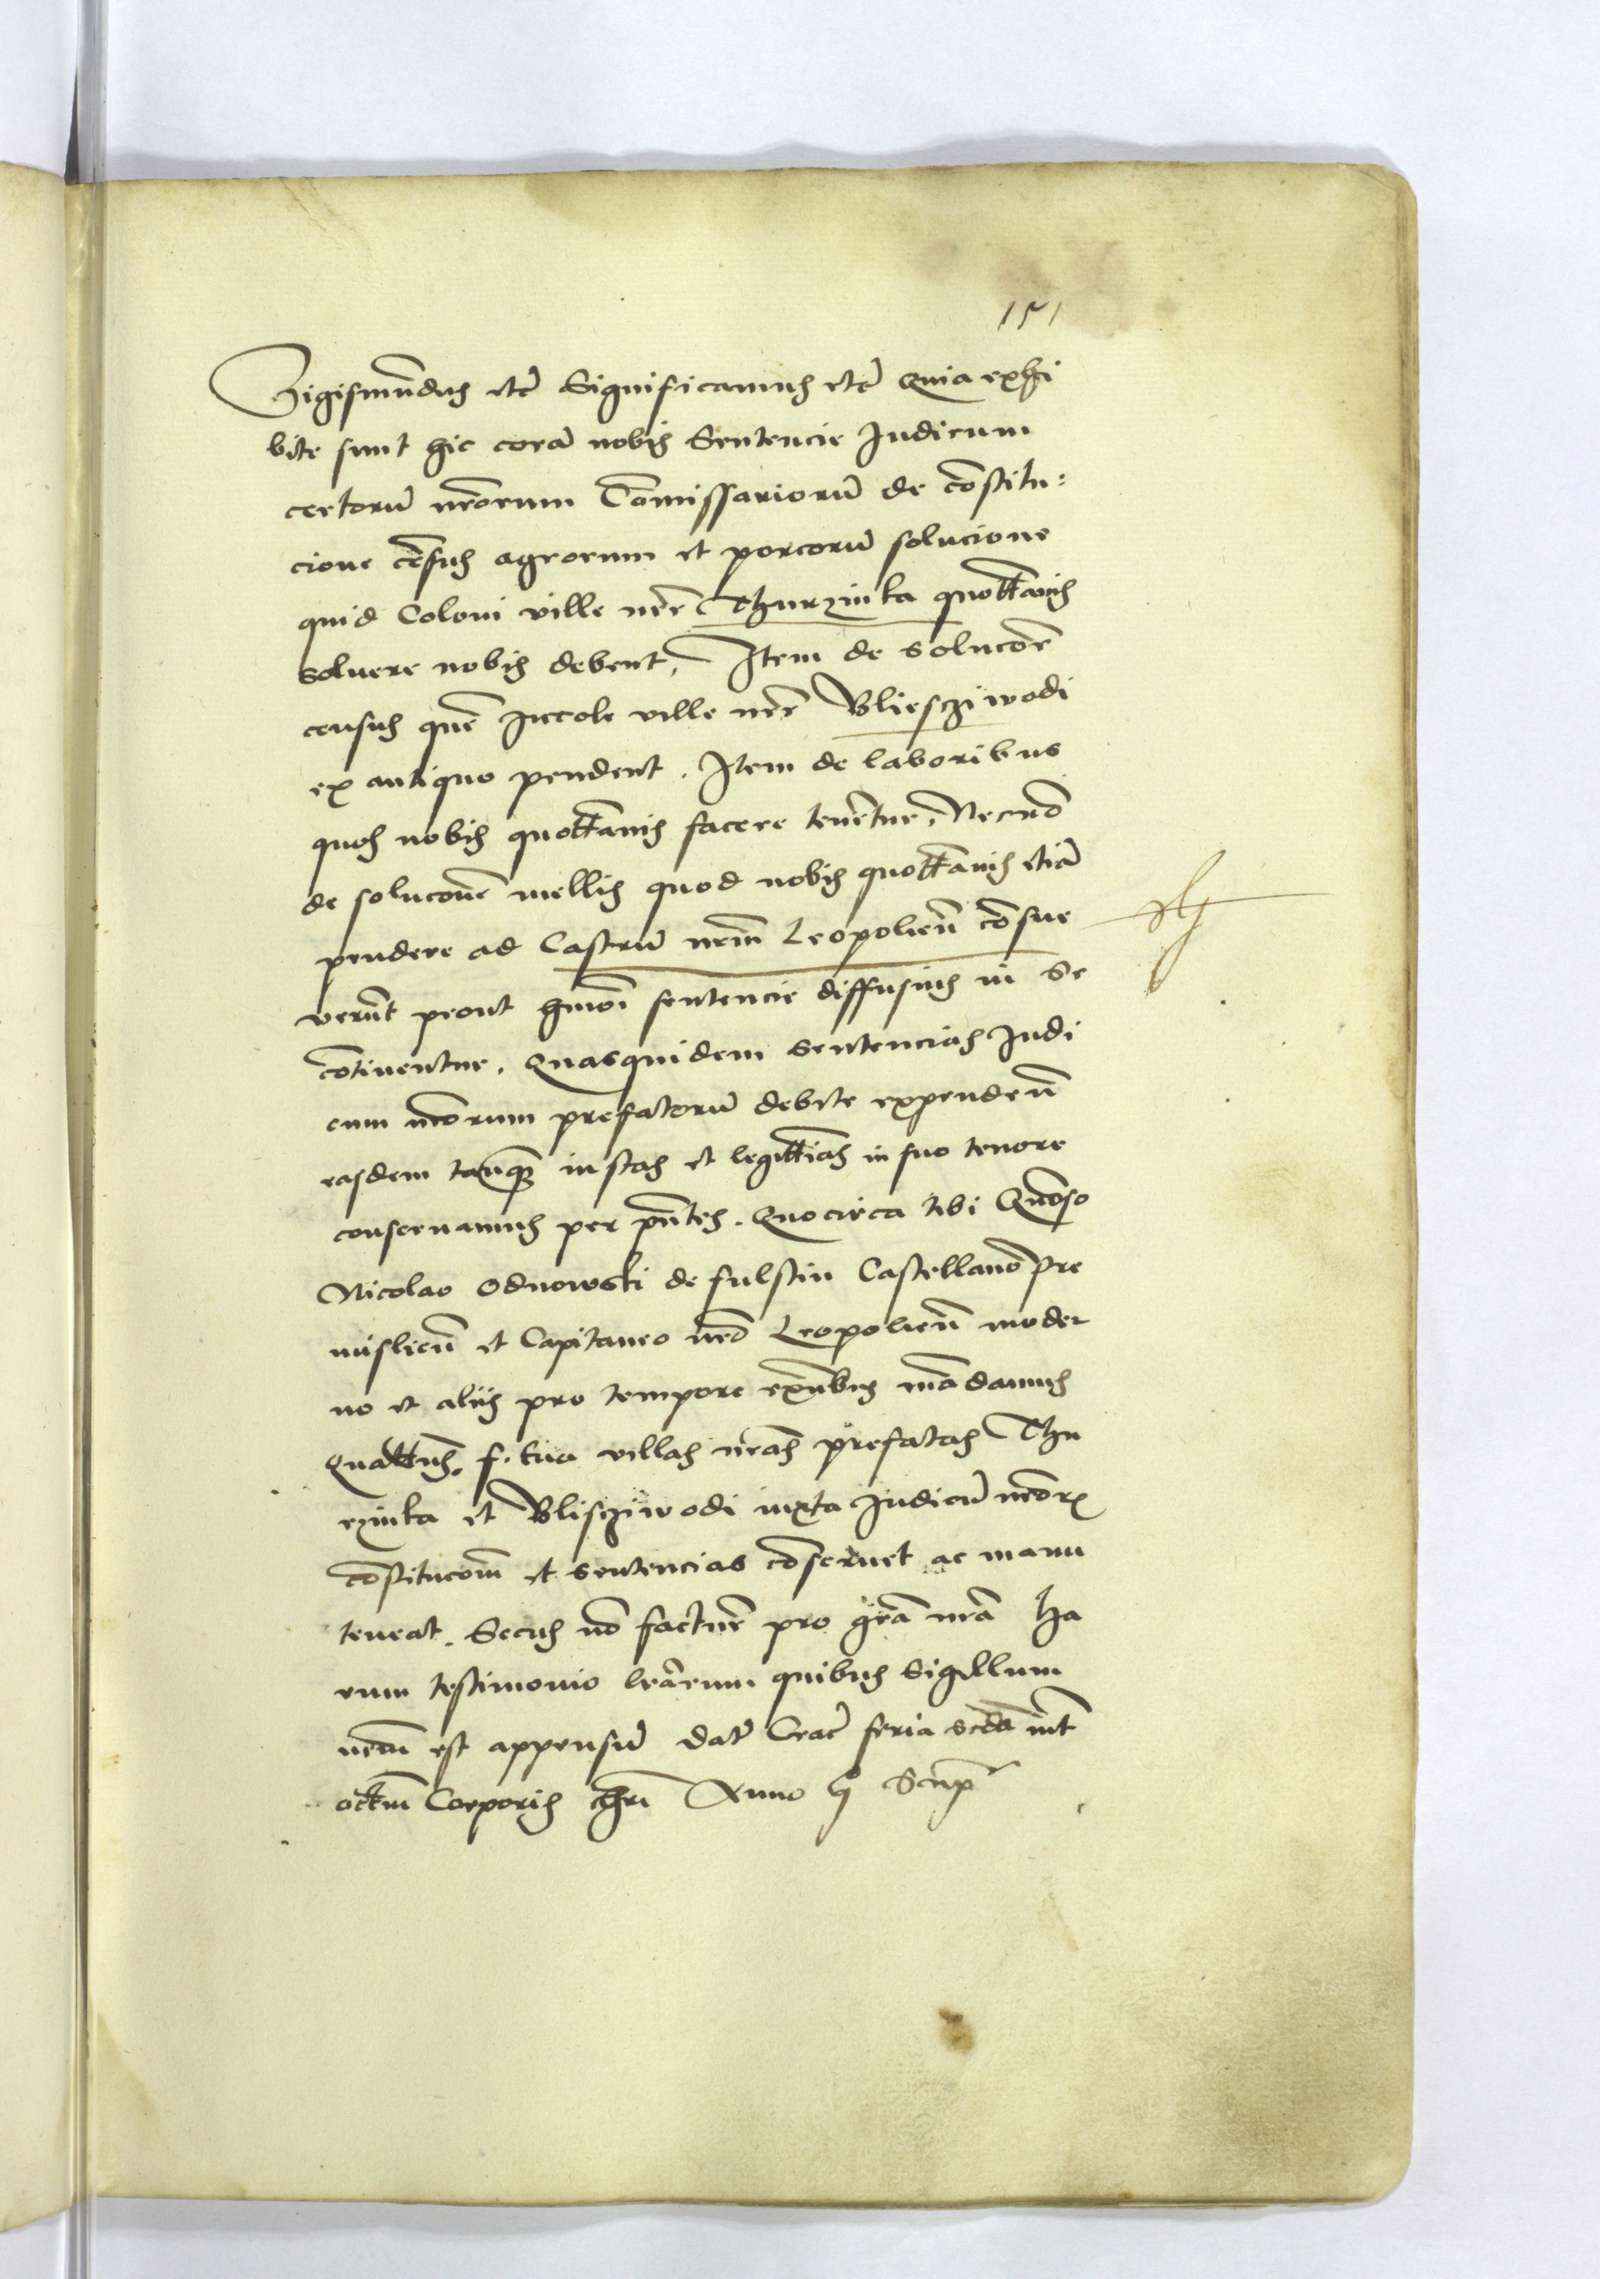 151
Sigismu͂dus etc̃ Significamus etc̃ Quia exhi
bite sunt hic corã nobis Sentencie Iudicum
certorũ nr̃orum Com̃issariorũ de cõstitu:
cione cẽsus agrorum et porcorũ solucione
quid Coloni ville nr̃e Thurzinka quottãnis
soluere nobis debent, Item de solucõe
census quẽ Incole ville nr̃e Bliescziwodi
ex antiquo pendent. Item de laboribus
quos nobis quottãnis facere tenẽtur, Necnõ
de solucõne mellis quod nobis quottãnis etiã
pendere ad Castrũ nrm̃ Leopolien̄ cõsue
verũt prout hmõi sentencie diffusius in se
cõtinentur. Quasquidem sentencias Iudi
cum nr̃orum prefatorũ debite expenden̄
easdem tanq̃ iustas et legittimas in suo tenore
conseruamus per pñtes. Quocirca tibi Gñoso
Nicolao Odnowski de fulstin Castellano Pre
mislien̄ et Capitaneo nrõ Leopolien̄ moder
no et aliis pro tempore exñtibus mãdamus
Quattenus f. tua villas nr̃as prefatas Thu
rzinka et Blisziwodi iuxta Iudicũ nr̃orũ
cõstitucõem et sentencias cõseruet ac manu
teneat. Secus nõ facture pro grã nr̃a Ha
rum testimonio lr̃arum quibus Sigillum
nrm̃ est appensũ Dat̃ Crac̃ feria scda int̃
octãm Corporis chr̃i Anno